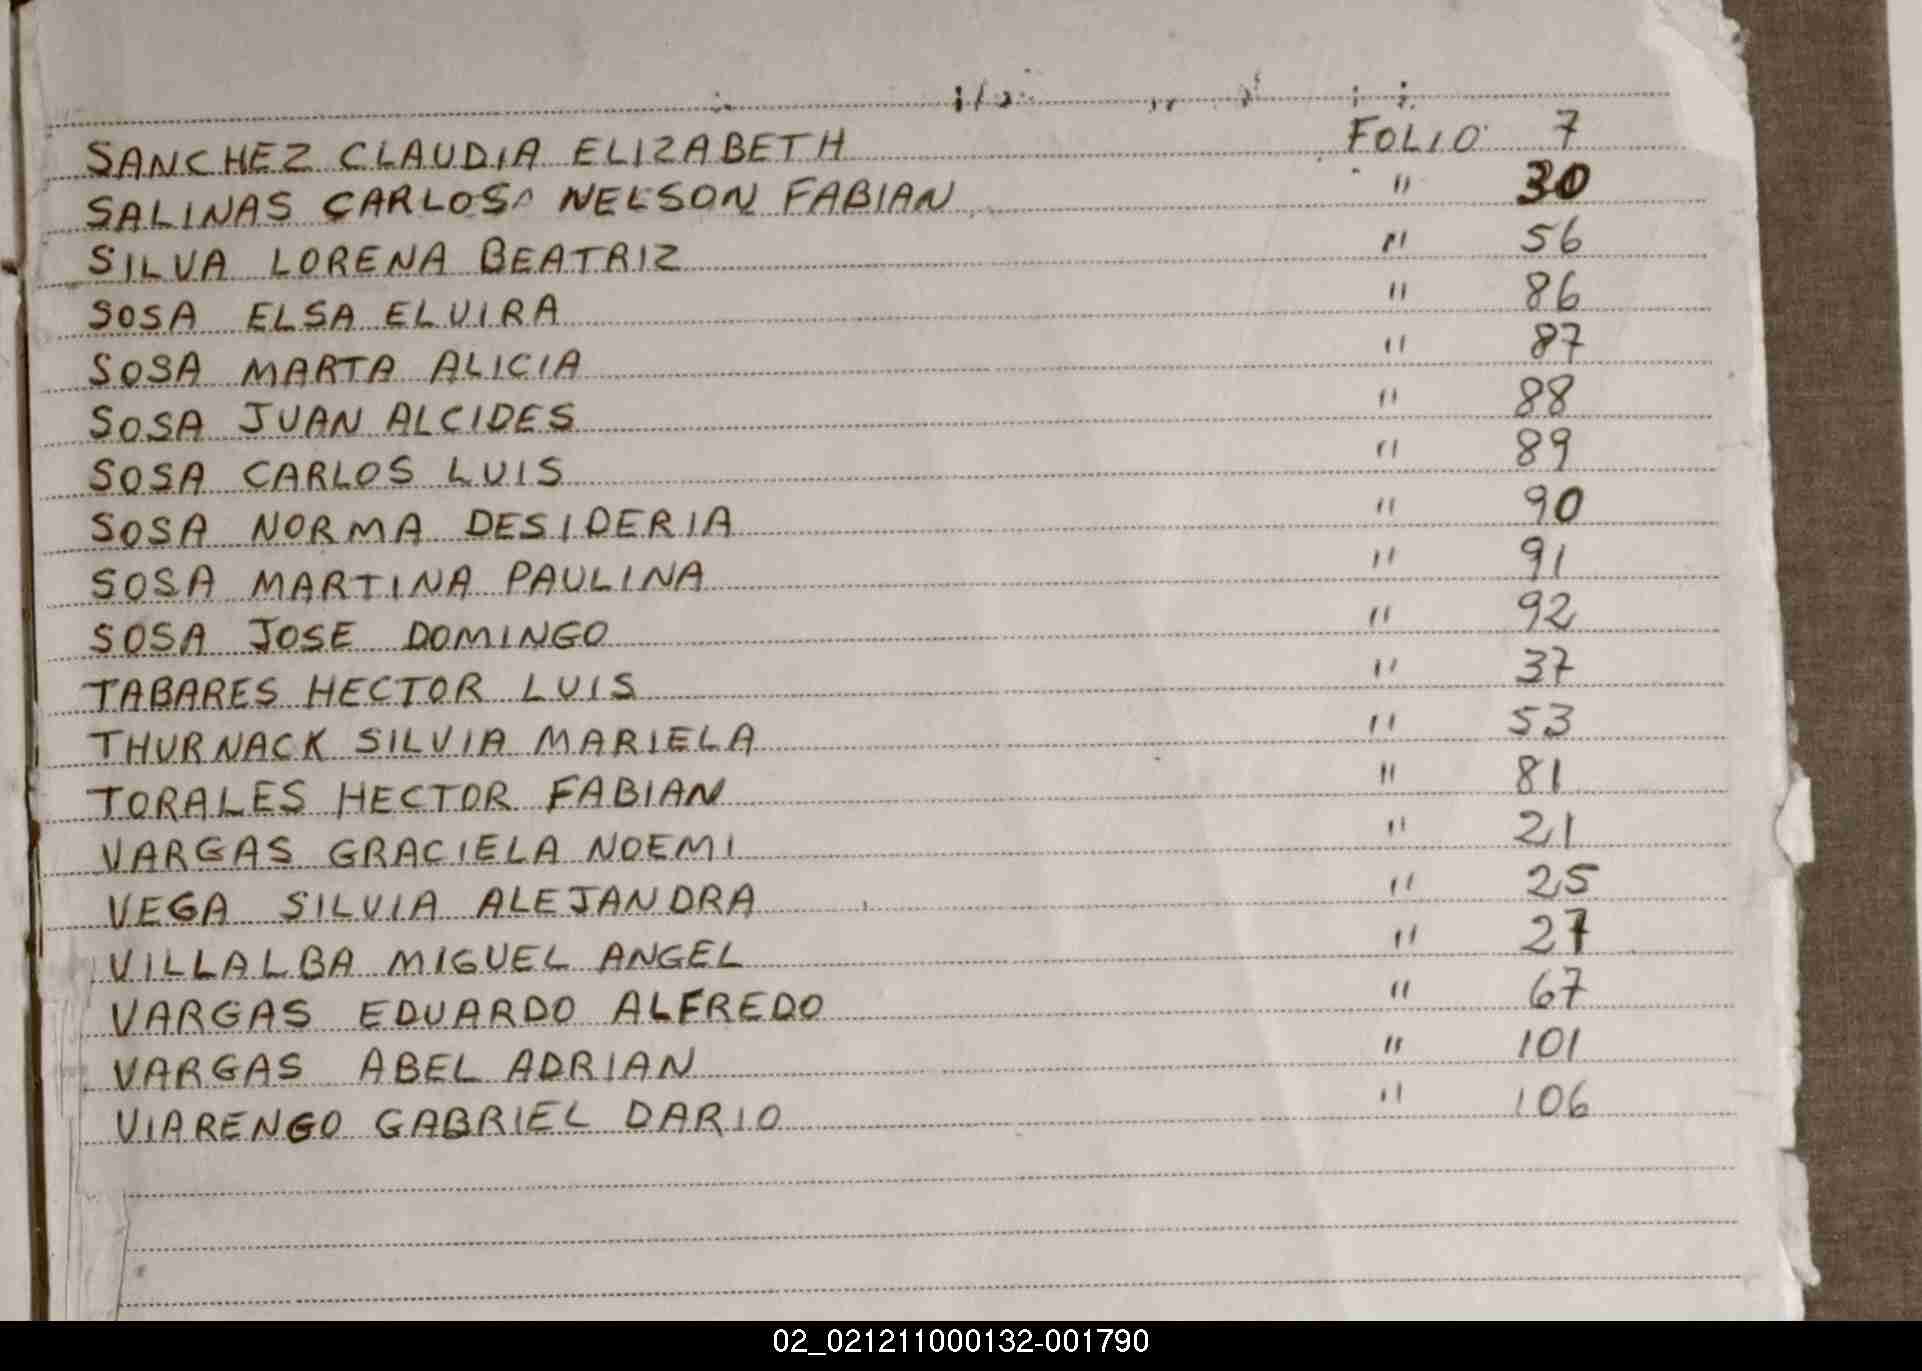 SANCHEZ CLAUDIA ELIZABETH FOLIO 7
SALINAS CARLOS NELSON FABIAN " 30
SILVA LORENA BEATRIZ " 56
SOSA ELSA ELVIRA " 86
SOSA MARTA ALICIA " 87
SOSA JUAN ALCIDES " 88
SOSA CARLOS LUIS " 89
SOSA NORMA DESIDERIA " 90
SOSA MARTINA PAULINA " 91
SOSA JOSE DOMINGO " 92
TABARES HECTOR LUIS " 37
THURNACK SILVIA MARIELA " 53
TORALES HECTOR FABIAN " 81
VARGAS GRACIELA NOEMI " 21
VEGA SILVIA ALEJANDRA " 25
VILLALBA MIGUEL ANGEL " 27
VARGAS EDUARDO ALFREDO " 67
VARGAS ABEL ADRIAN " 101
VIARENGO GABRIEL DARIO " 106
02_021211000132-001790